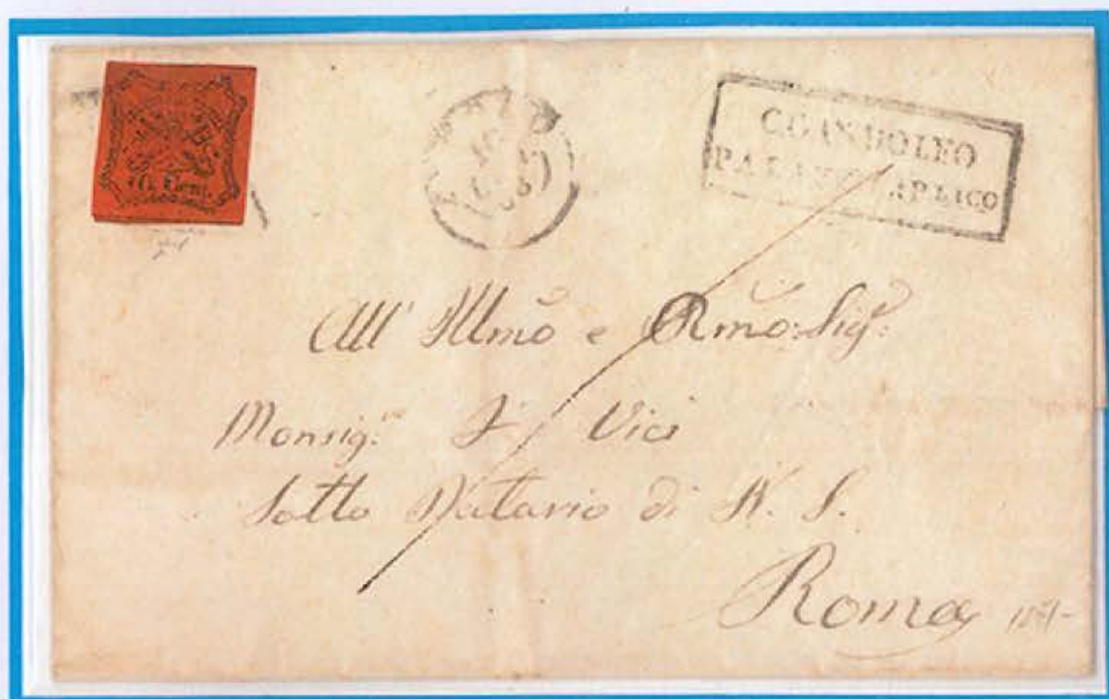 10 Cent.
C. GANDOLFO
PALAZZO APLICO
All' Illmo e Rmo: Sigr:
Monsigr: Vici
Sotto Datario di N. S.
Roma